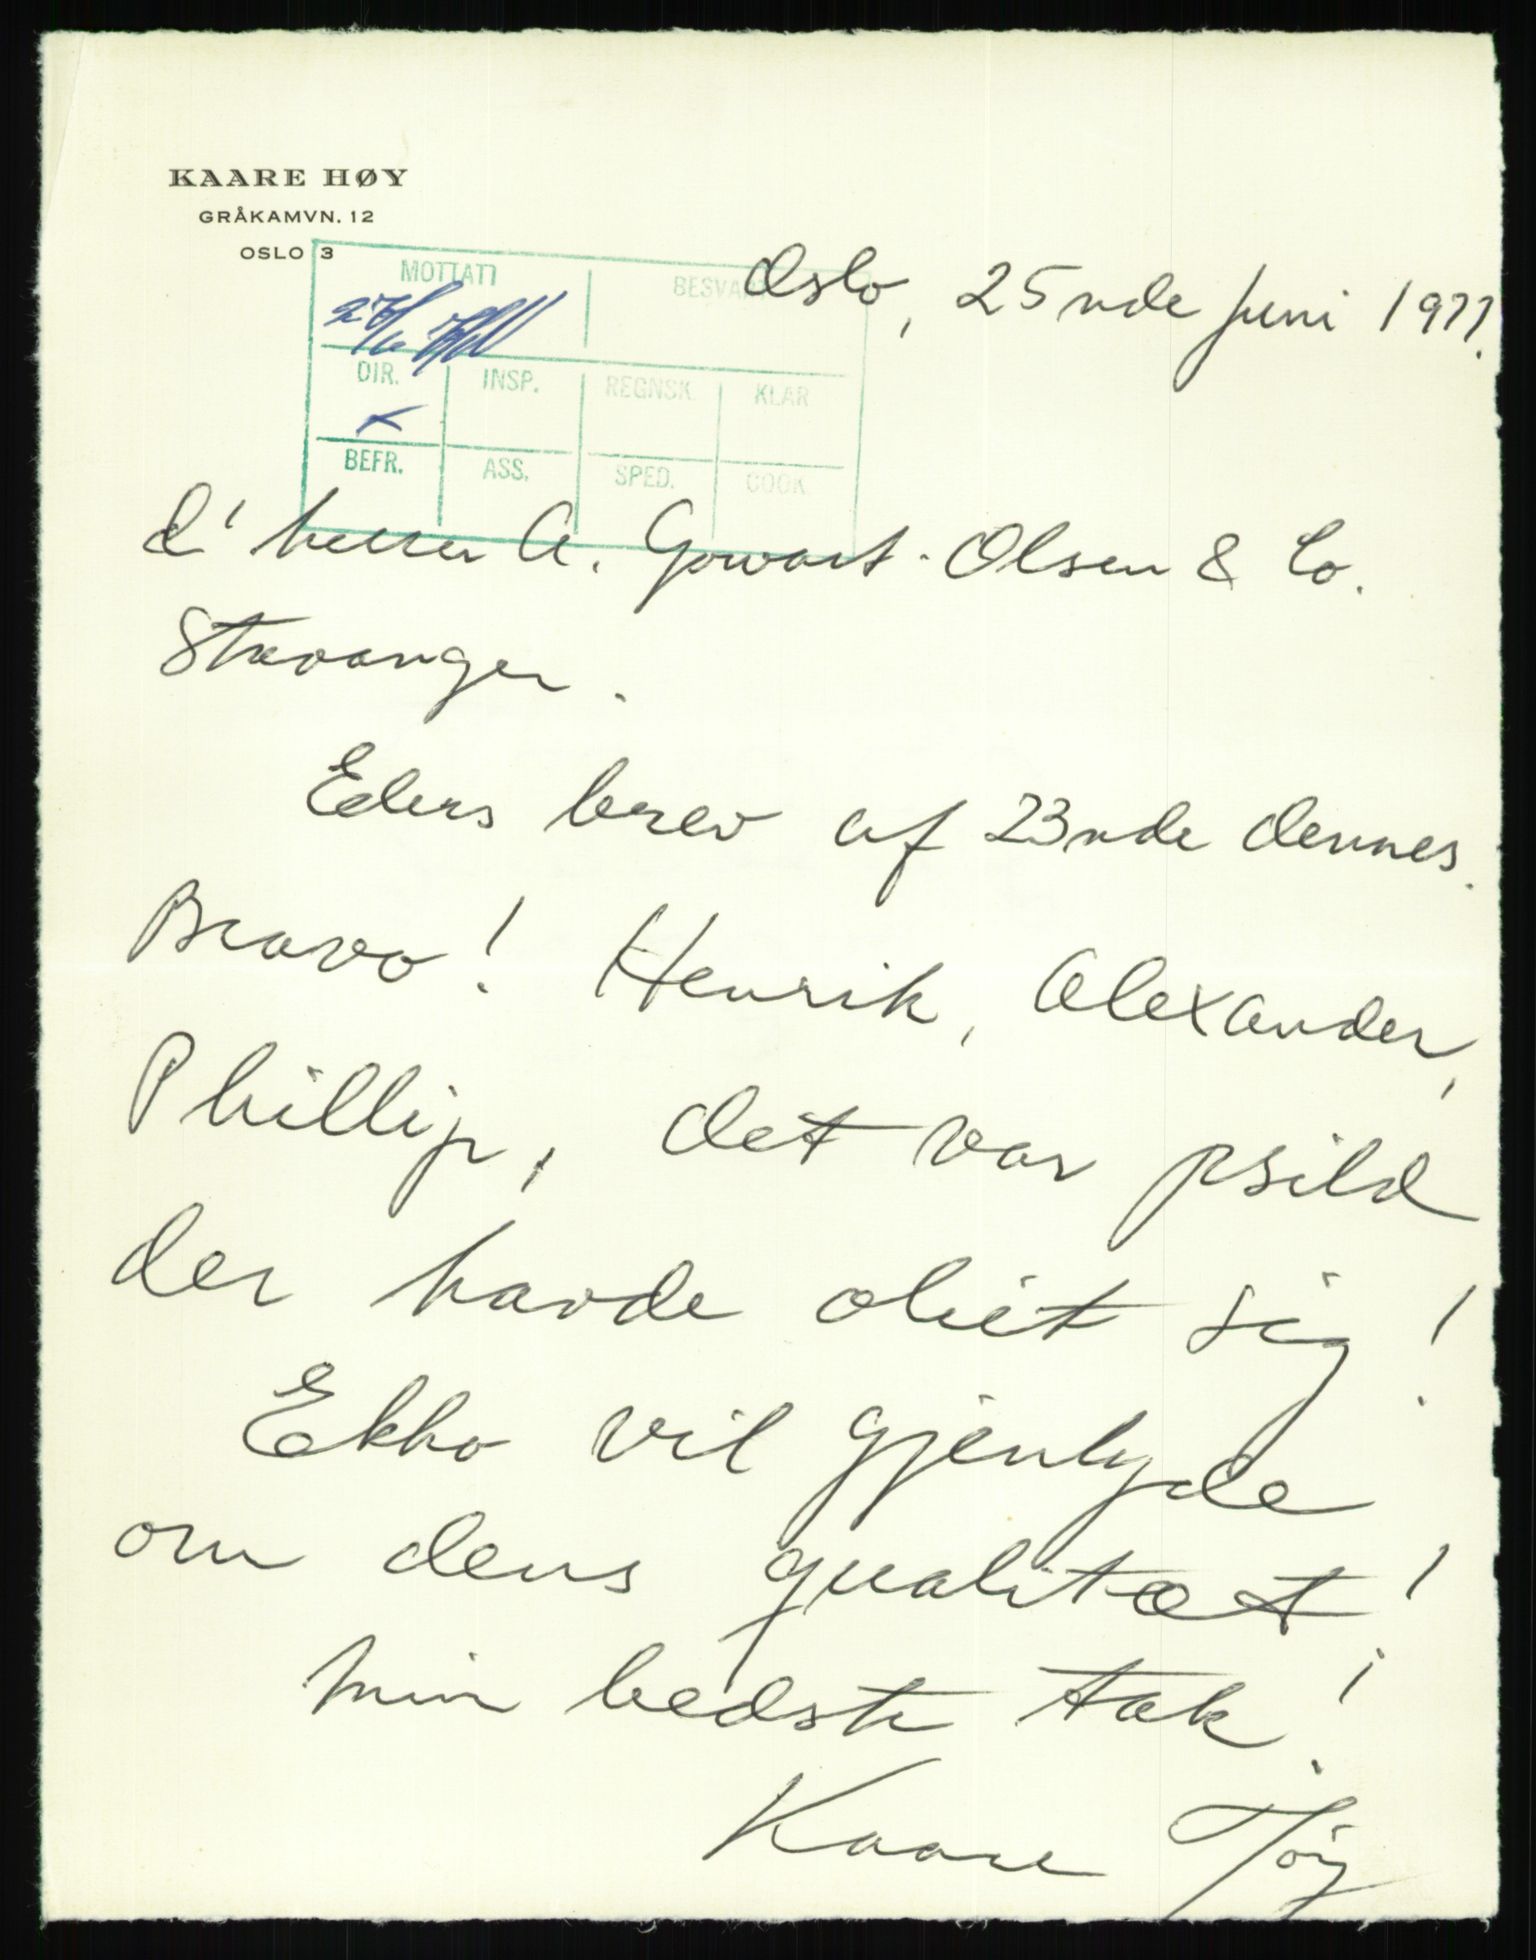 KAARE HØY
GRÅKAMVN. 12
OSLO 3
MOTTATT BESVART
27/6
DIR. INSP. REGNSK. KLAR
x
BEFR. ASS. SPED. COOK
Oslo, 25nde juni 1977.
d'herrer A. Gowart-Olsen & Co.
Stavanger.
Eders brev af 23nde dennes.
Bravo! Henrik, Alexander,
Phillip, det var psild
der havde oliet sig!
Ekko vil gjenlyde
om dens qualitæt!
Min bedste tak!
Kaare Høy